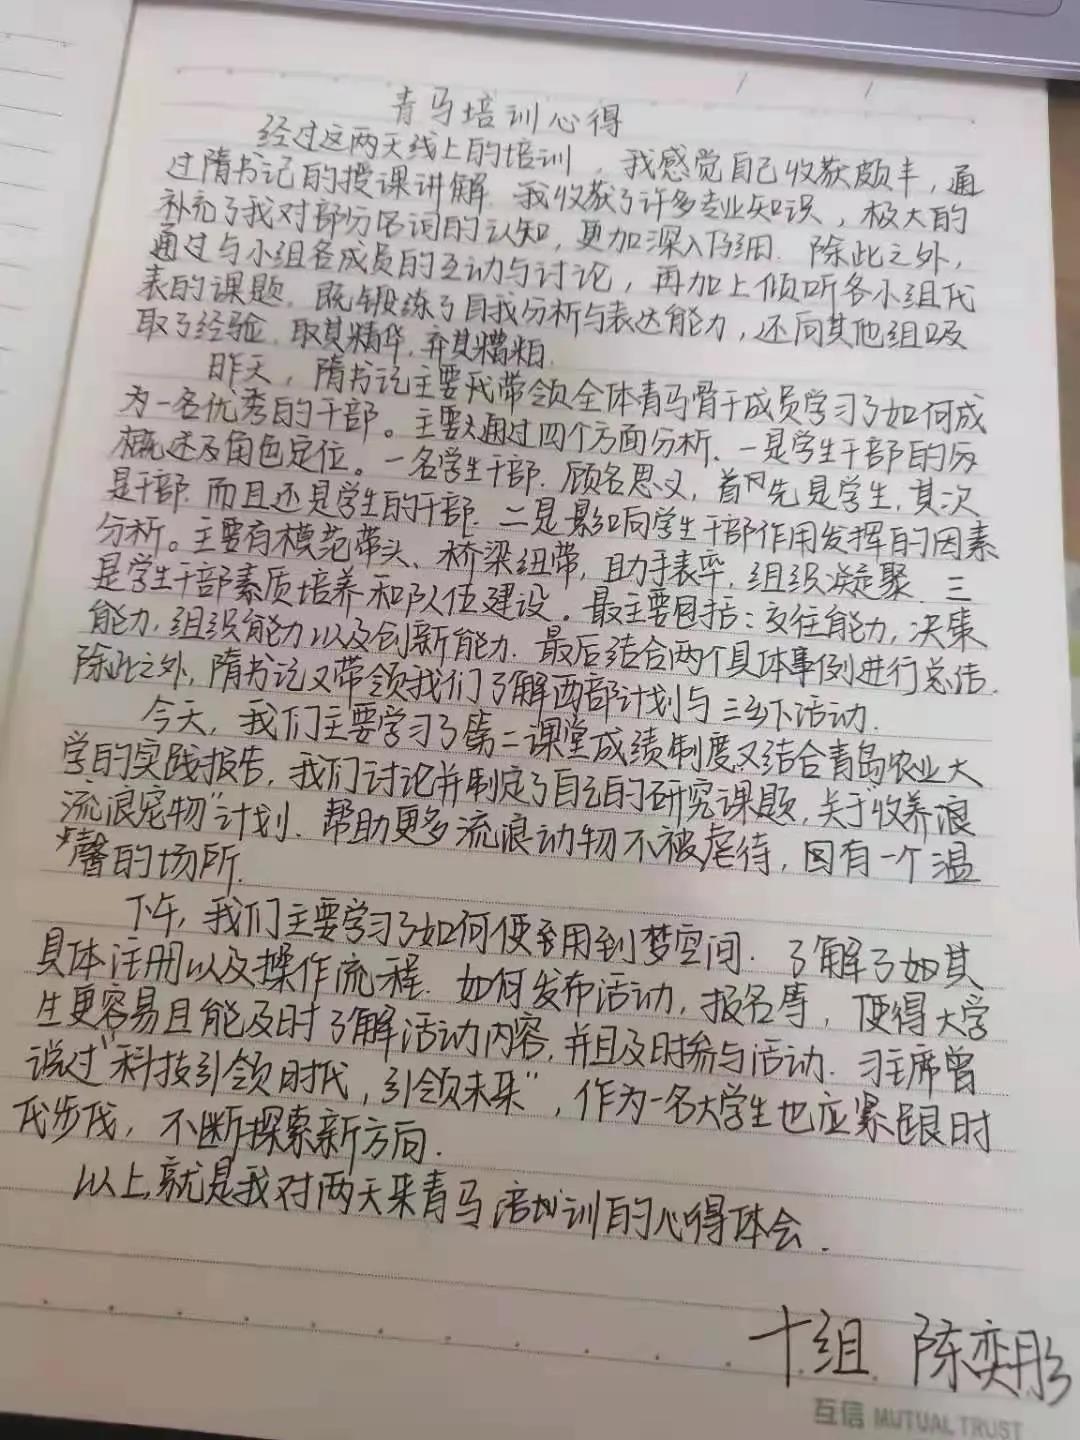 青马培训心得
经过这两天线上的培训，我感觉自己收获颇丰，通
过隋书记的授课讲解.我收获了许多专业知识，极大的
补充了我对部份名词的认知，更加深入仔细.除此之外，
通过与小组各成员的互动与讨论，再加上倾听各小组代
表的课题.既锻练了自我分析与表达能力，还向其他组吸
取了经验，取其精华，弃其糟粕.
昨天，隋书记主要代带领全体青马骨干成员学习了如何成
为一名优秀的干部。主要通过四个方面分析.一是学生干部的
概述及角色定位。一名学生干部.顾名思义，首先是学生，其次
是干部.而且还是学生的干部.二是影响学生干部作用发挥的因素
分析。主要有模范带头、桥梁纽带，助手表率，组织凝聚.三
是学生干部素质培养和队伍建设。最主要包括：交往能力，决策
能力，组织能力以及创新能力.最后结合两个具体事例进行总结.
除此之外，隋书记又带领我们了解西部计划与三乡下活动.
今天，我们主要学习了第二课堂成绩制度又结合青岛农业大
学的实践报告，我们讨论并制定了自己的研究课题，关于"收养浪
流浪宠物"计划.帮助更多流浪动物不被虐待，因有一个温
馨的场所.
下午，我们主要学习了如何使用到梦空间.了解了如其
具体注册以及操作流程.如何发布活动，报名等，使得大学
生更容易且能及时了解活动内容，并且及时参与活动.习主席曾
说过"科技引领时代，引领未来"，作为一名大学生也应紧跟时
代步伐，不断探索新方向.
以上，就是我对两天来青马培训的心得体会.
十组 陈奕彤
互信 MUTUAL TRUST